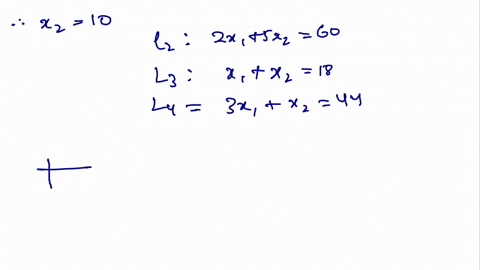 ∴ x₂ = 10
l₂ : 2x₁ + 5x₂ = 60
L₃ : x₁ + x₂ = 18
L₄ = 3x₁ + x₂ = 44